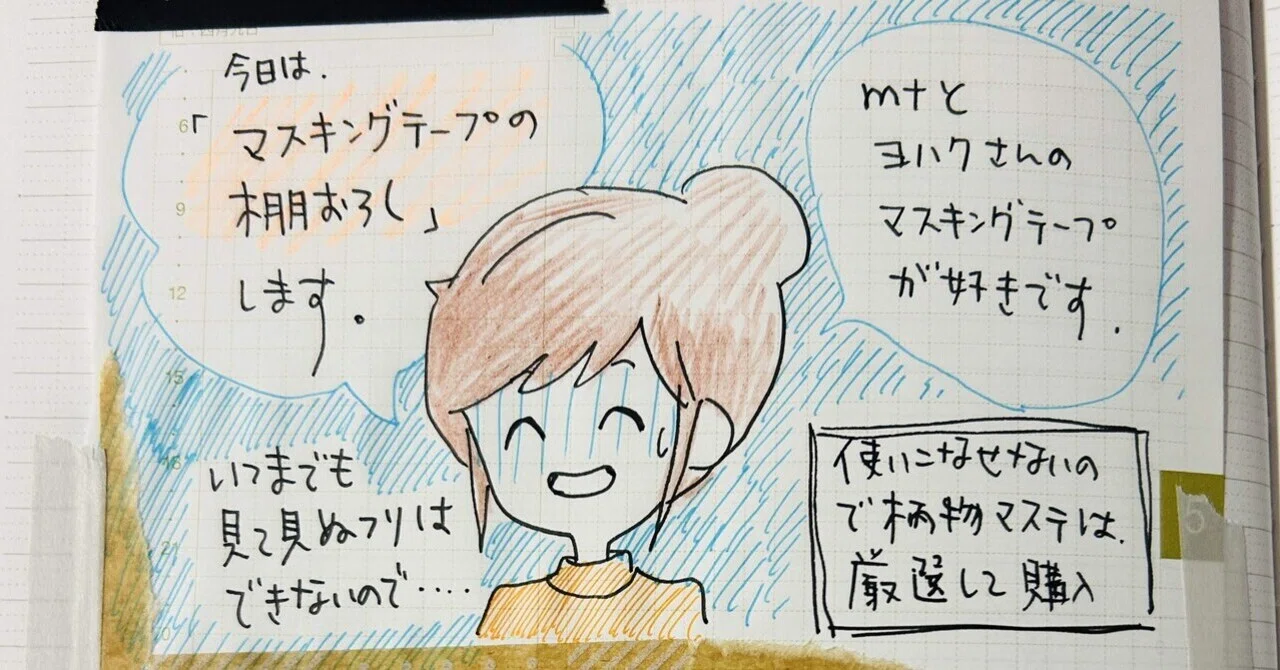 今日は.
「マスキングテープの
棚おろし」
します。
mtと
ヨハクさんの
マスキングテープ
が好きです.
いつまでも
見て見ぬフリは
できないので‥‥
使いこなせないの
で柄物マステは.
厳選して購入
6
9
12
15
18
21
5